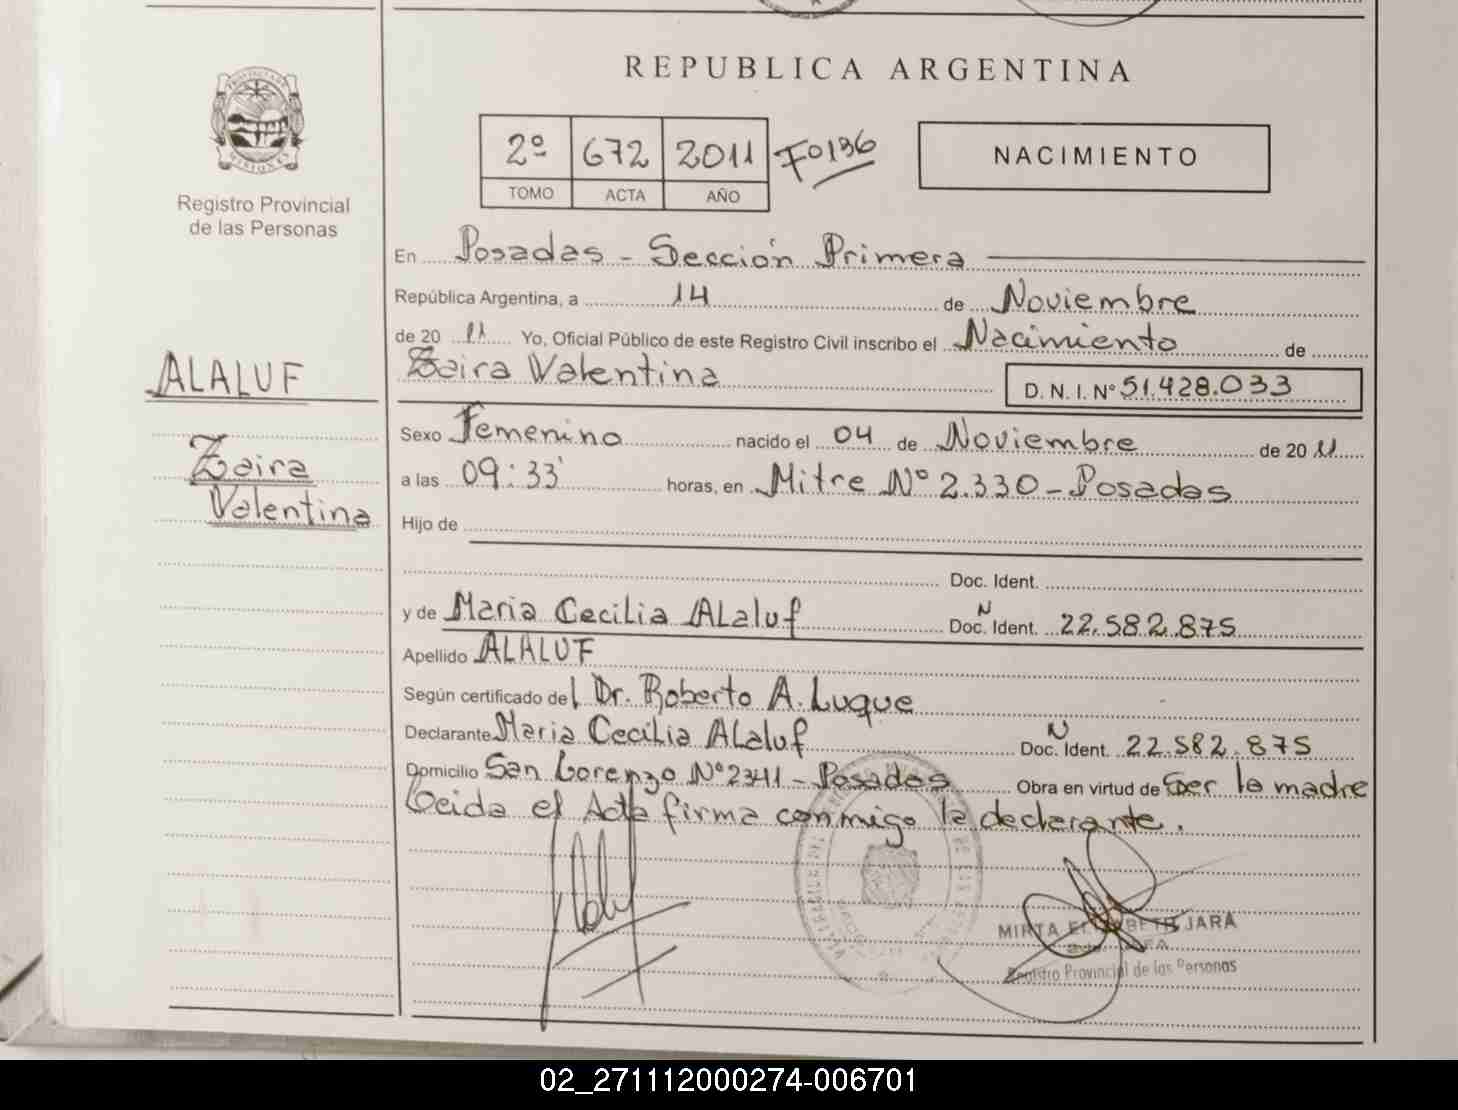 REPUBLICA ARGENTINA
2º 672 2011 Fº 136
TOMO ACTA AÑO
NACIMIENTO
PROVINCIA DE MISIONES
Registro Provincial
de las Personas
ALALUF
Zaira
Valentina
En Posadas - Sección Primera
República Argentina, a 14 de Noviembre
de 20 11 Yo, Oficial Público de este Registro Civil inscribo el Nacimiento de
Zaira Valentina D. N. I. Nº 51.428.033
Sexo Femenino nacido el 04 de Noviembre de 20 11
a las 09:33' horas, en Mitre Nº 2.330 - Posadas
Hijo de
Doc. Ident.
y de Maria Cecilia Alaluf Doc. N Ident. 22.582.875
Apellido ALALUF
Según certificado del Dr. Roberto A. Luque
Declarante Maria Cecilia Alaluf Doc. N Ident. 22.582.875
Domicilio San Lorenzo Nº 2341 - Posadas Obra en virtud de ser la madre
Leida el Acta firma conmigo la declarante.
MIRTA JARA
Registro Provincial de las Personas
02_271112000274-006701